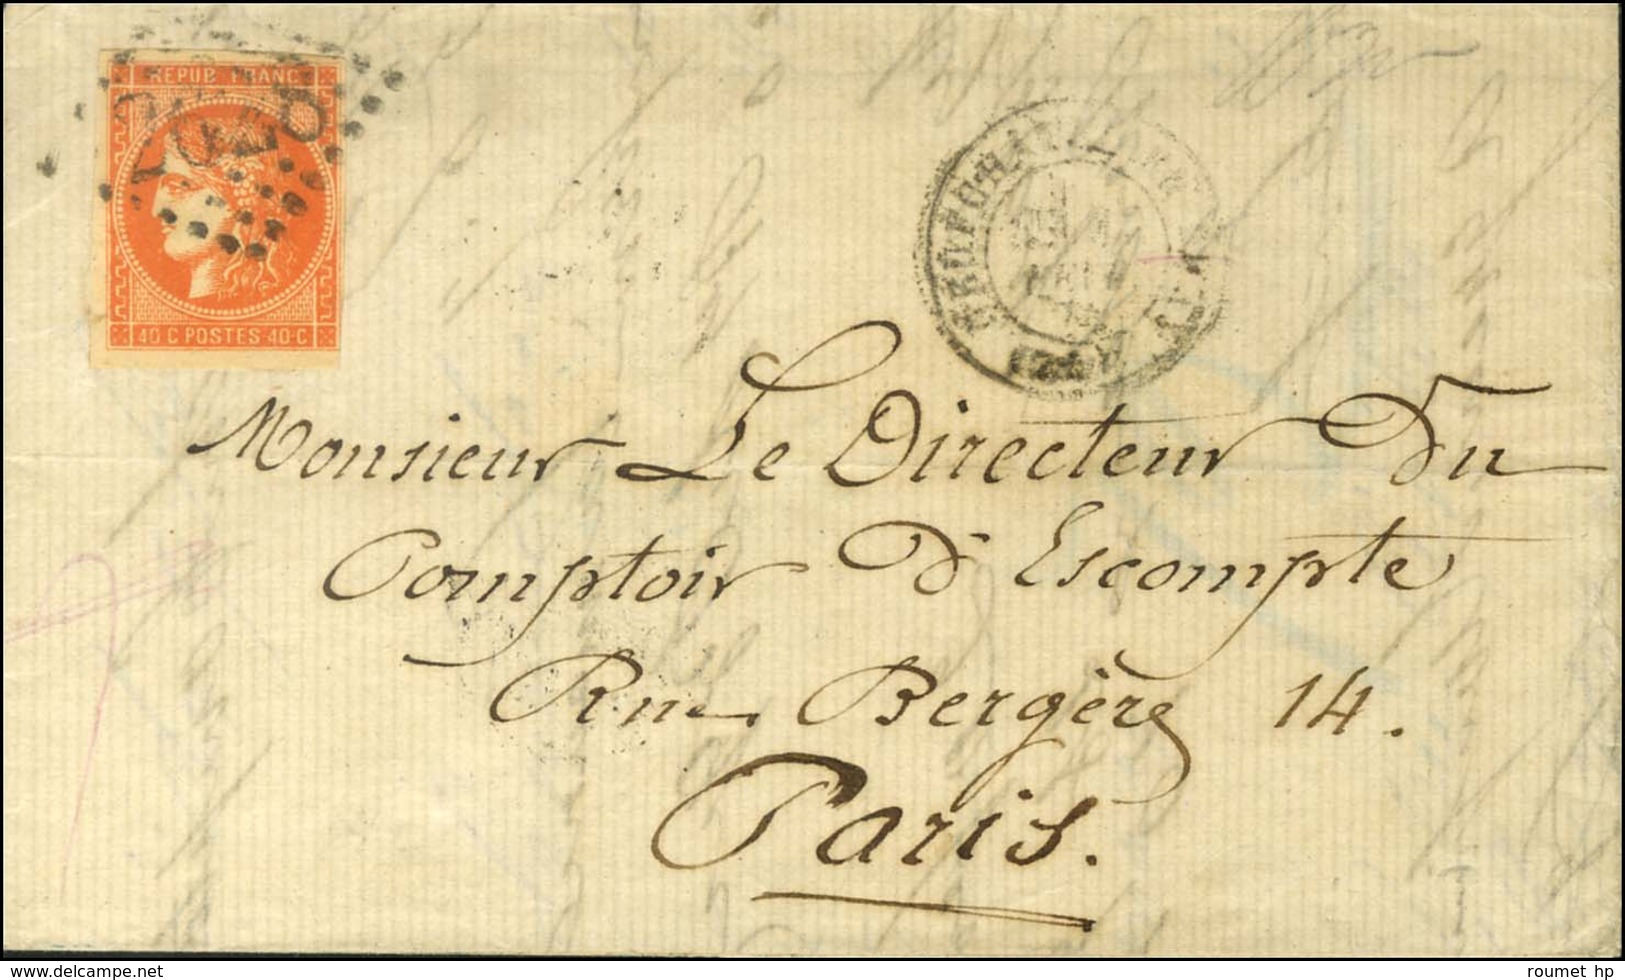 REPUB FRANC
40 C POSTES 40 C
Monsieur Le Directeur Du
Comptoir D'Escompte
Rue Bergère 14.
Paris.
roumet hp